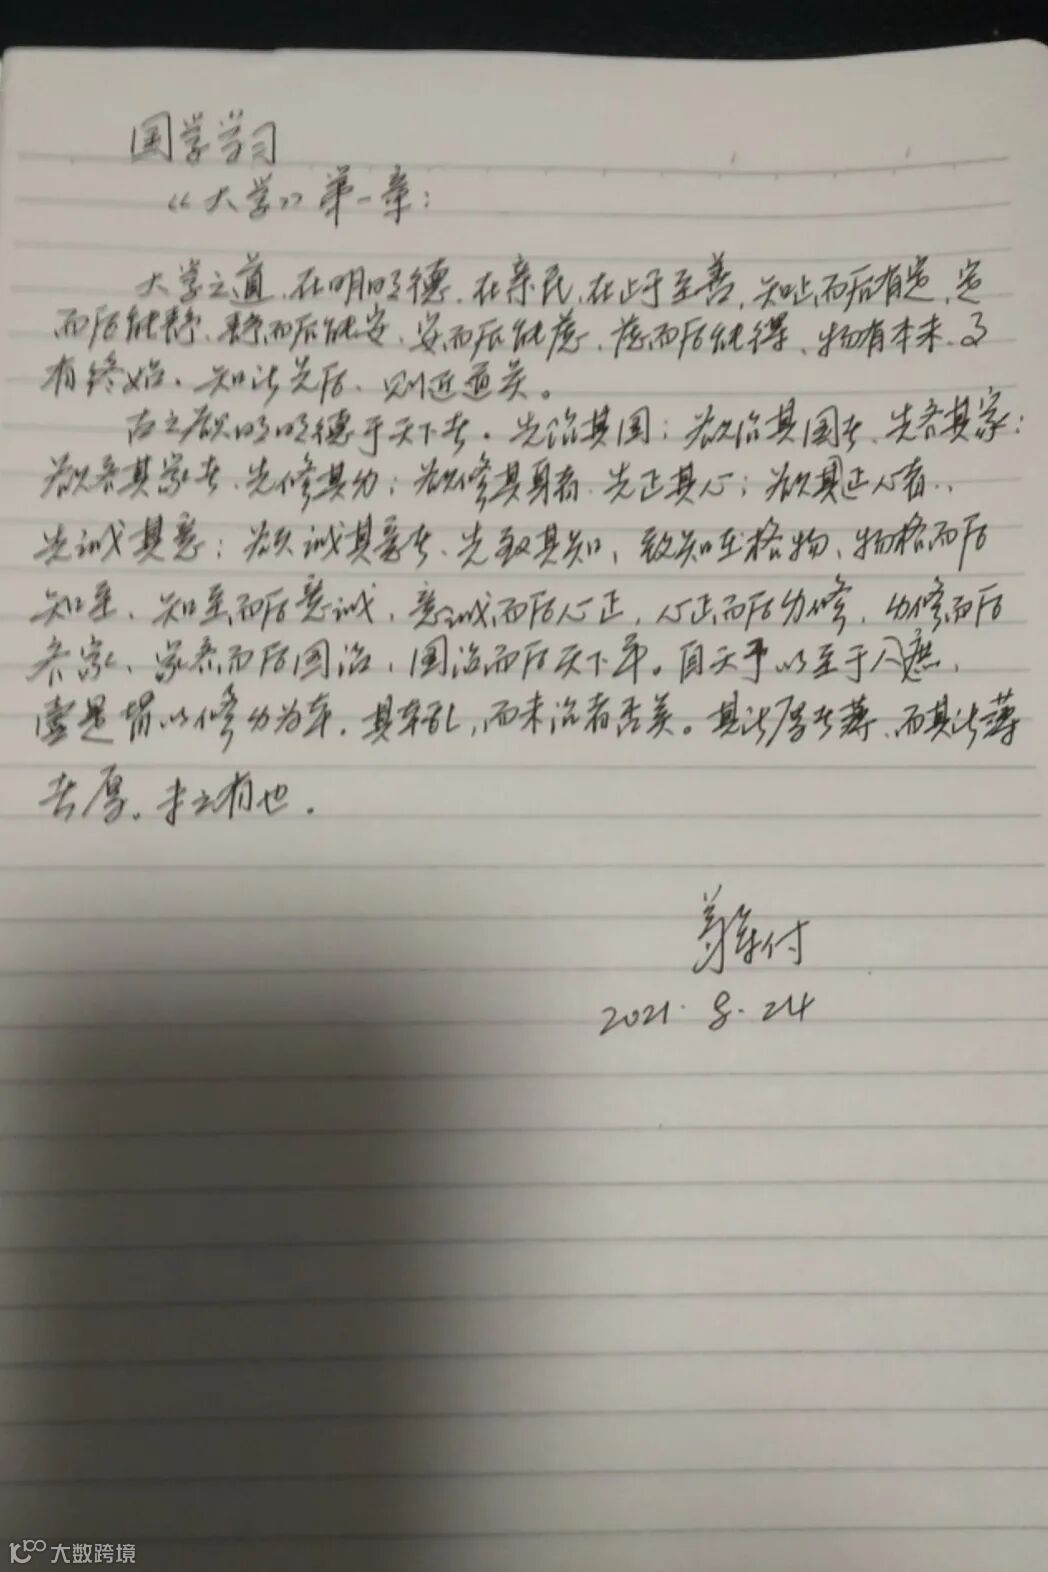 国学学习
《大学》第一章：
大学之道、在明明德、在亲民、在止于至善、知止而后有定、定
而后能静、静而后能安、安而后能虑、虑而后能得、物有本末、事
有终始、知此先后、则近道矣。
古之欲明明德于天下者，先治其国；欲治其国者、先齐其家；
欲齐其家者、先修其身；欲修其身者、先正其心；欲其正心者、
先诚其意；欲诚其意者、先致其知、致知在格物、物格而后
知至、知至而后意诚、意诚而后心正、心正而后身修、身修而后
齐家、家齐而后国治、国治而后天下平。自天子以至于人庶、
壹是皆以修身为本，其本乱，而末治者否矣。其所厚者薄、而其所薄
者厚。未之有也。
付
2021.8.24
大数跨境